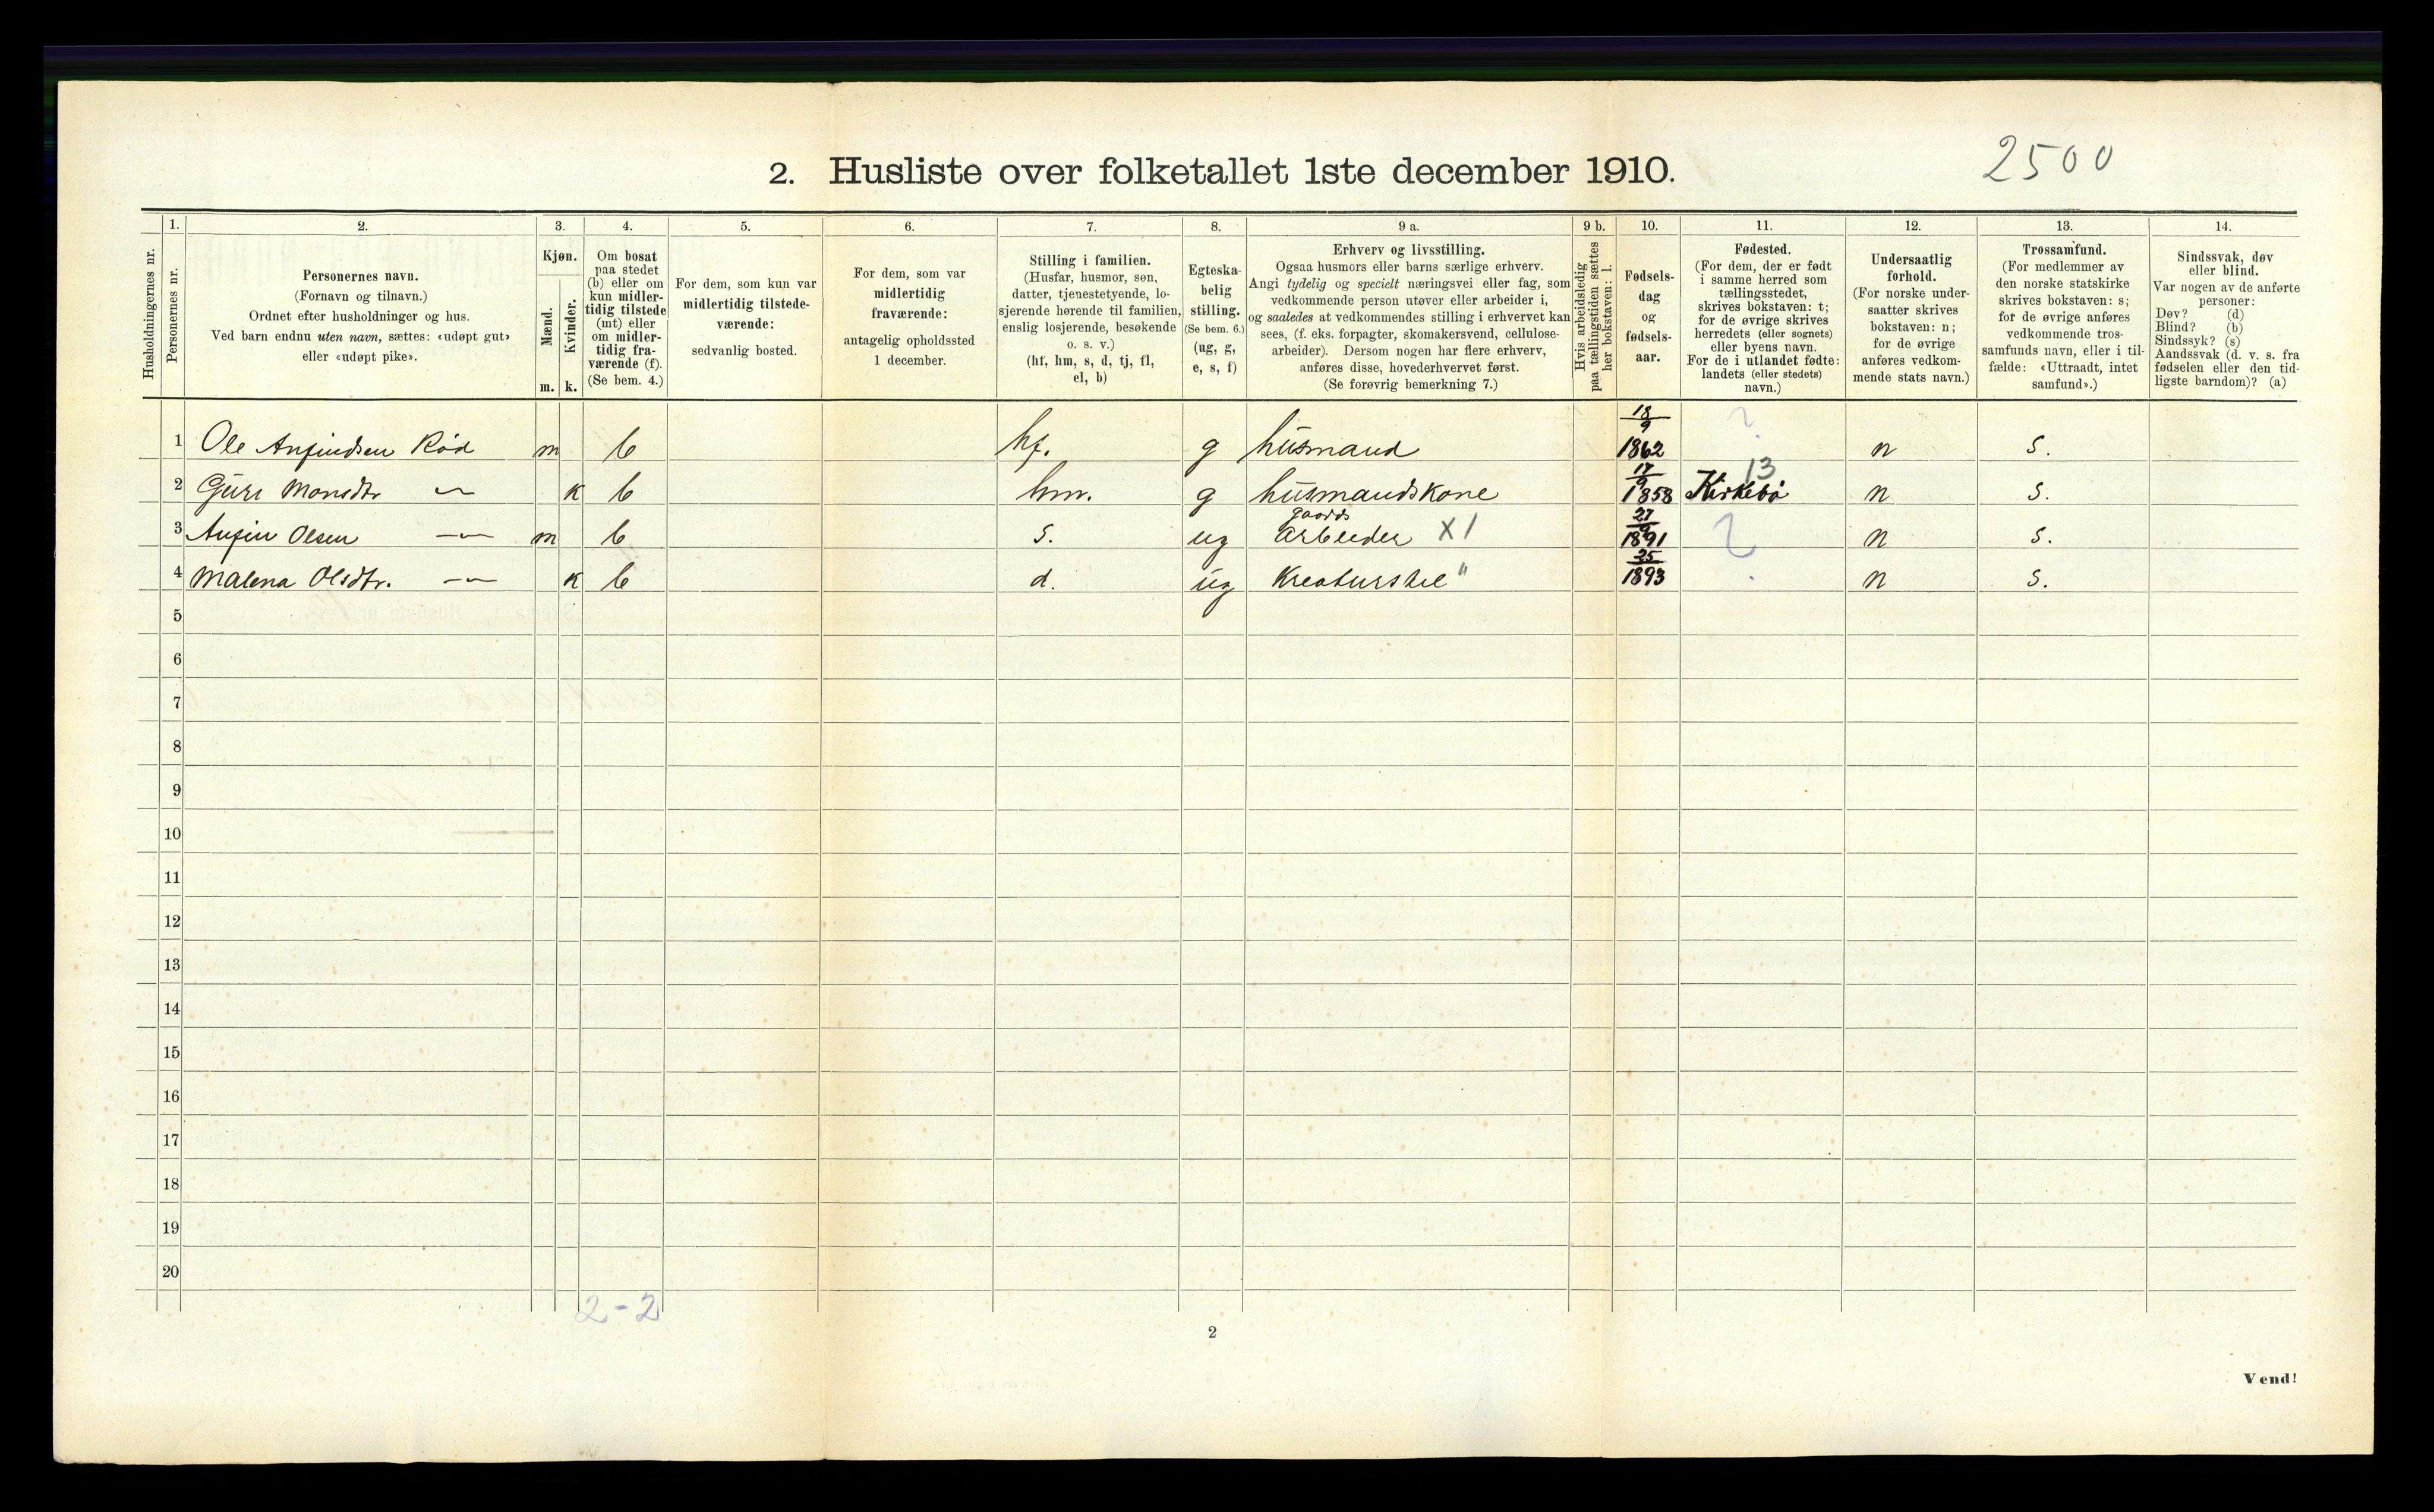 2500
2. Husliste over folketallet 1ste december 1910.
Husholdningernes nr.
1.
Personernes nr.
2.
Personernes navn.
(Fornavn og tilnavn.)
Ordnet efter husholdninger og hus.
Ved barn endnu uten navn, sættes: «udøpt gut»
eller «udøpt pike».
3.
Kjøn.
Mænd.
Kvinder.
m. k.
4.
Om bosat
paa stedet
(b) eller om
kun midler-
tidig tilstede
(mt) eller
om midler-
tidig fra-
værende (f).
(Se bem. 4.)
5.
For dem, som kun var
midlertidig tilstede-
værende:
sedvanlig bosted.
6.
For dem, som var
midlertidig
fraværende:
antagelig opholdssted
1 december.
7.
Stilling i familien.
(Husfar, husmor, søn,
datter, tjenestetyende, lo-
sjerende hørende til familien,
enslig losjerende, besøkende
o. s. v.)
(hf, hm, s, d, tj, fl,
el, b)
8.
Egteska-
belig
stilling.
(Se bem. 6.)
(ug, g,
e, s, f)
9 a.
Erhverv og livsstilling.
Ogsaa husmors eller barns særlige erhverv.
Angi tydelig og specielt næringsvei eller fag, som
vedkommende person utøver eller arbeider i,
og saaledes at vedkommendes stilling i erhvervet kan
sees, (f. eks. forpagter, skomakersvend, cellulose-
arbeider). Dersom nogen har flere erhverv,
anføres disse, hovederhvervet først.
(Se forøvrig bemerkning 7.)
9 b.
Hvis arbeidsledig
paa tællingstiden sættes
her bokstaven: l.
10.
Fødsels-
dag
og
fødsels-
aar.
11.
Fødested.
(For dem, der er født
i samme herred som
tællingsstedet,
skrives bokstaven: t;
for de øvrige skrives
herredets (eller sognets)
eller byens navn.
For de i utlandet fødte:
landets (eller stedets)
navn.)
12.
Undersaatlig
forhold.
(For norske under-
saatter skrives
bokstaven: n;
for de øvrige
anføres vedkom-
mende stats navn.)
13.
Trossamfund.
(For medlemmer av
den norske statskirke
skrives bokstaven: s;
for de øvrige anføres
vedkommende tros-
samfunds navn, eller i til-
fælde: «Uttraadt, intet
samfund».)
14.
Sindssvak, døv
eller blind.
Var nogen av de anførte
personer:
Døv? (d)
Blind? (b)
Sindssyk? (s)
Aandssvak (d. v. s. fra
fødselen eller den tid-
ligste barndom)? (a)
1 Ole Anfindsen Rød m b hf. g husmand 18/9 1862 n s.
2 Guri Monsdtr — k b hm. g husmandskone 17/9 1858 Kirkebø 13 n s.
3 Anfin Olsen — m b s. ug gaards arbeider X1 27/9 1891 n s.
4 Malena Olsdtr. — k b d. ug Kreaturstel " 1893 n s.
5
6
7
8
9
10
11
12
13
14
15
16
17
18
19
20
2-2
2
Vend!